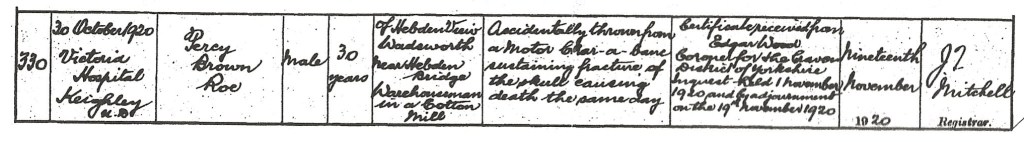 330
30 October 1920
Victoria
Hospital
Keighley
U.D
Percy
Brown
Roe
Male
30
years
Of Hebden View
Wadsworth
near Hebden
Bridge
Warehouseman
in a Cotton
Mill
Accidentally thrown from
a Motor Char-a-banc
sustaining fracture of
the skull causing
death the same day
Certificate received from
Edgar Wood
Coroner for the Craven
District of Yorkshire
Inquest held 1 November
1920 and by adjournment
on the 19th November 1920
Nineteenth
November
1920
J
Mitchell
Registrar.